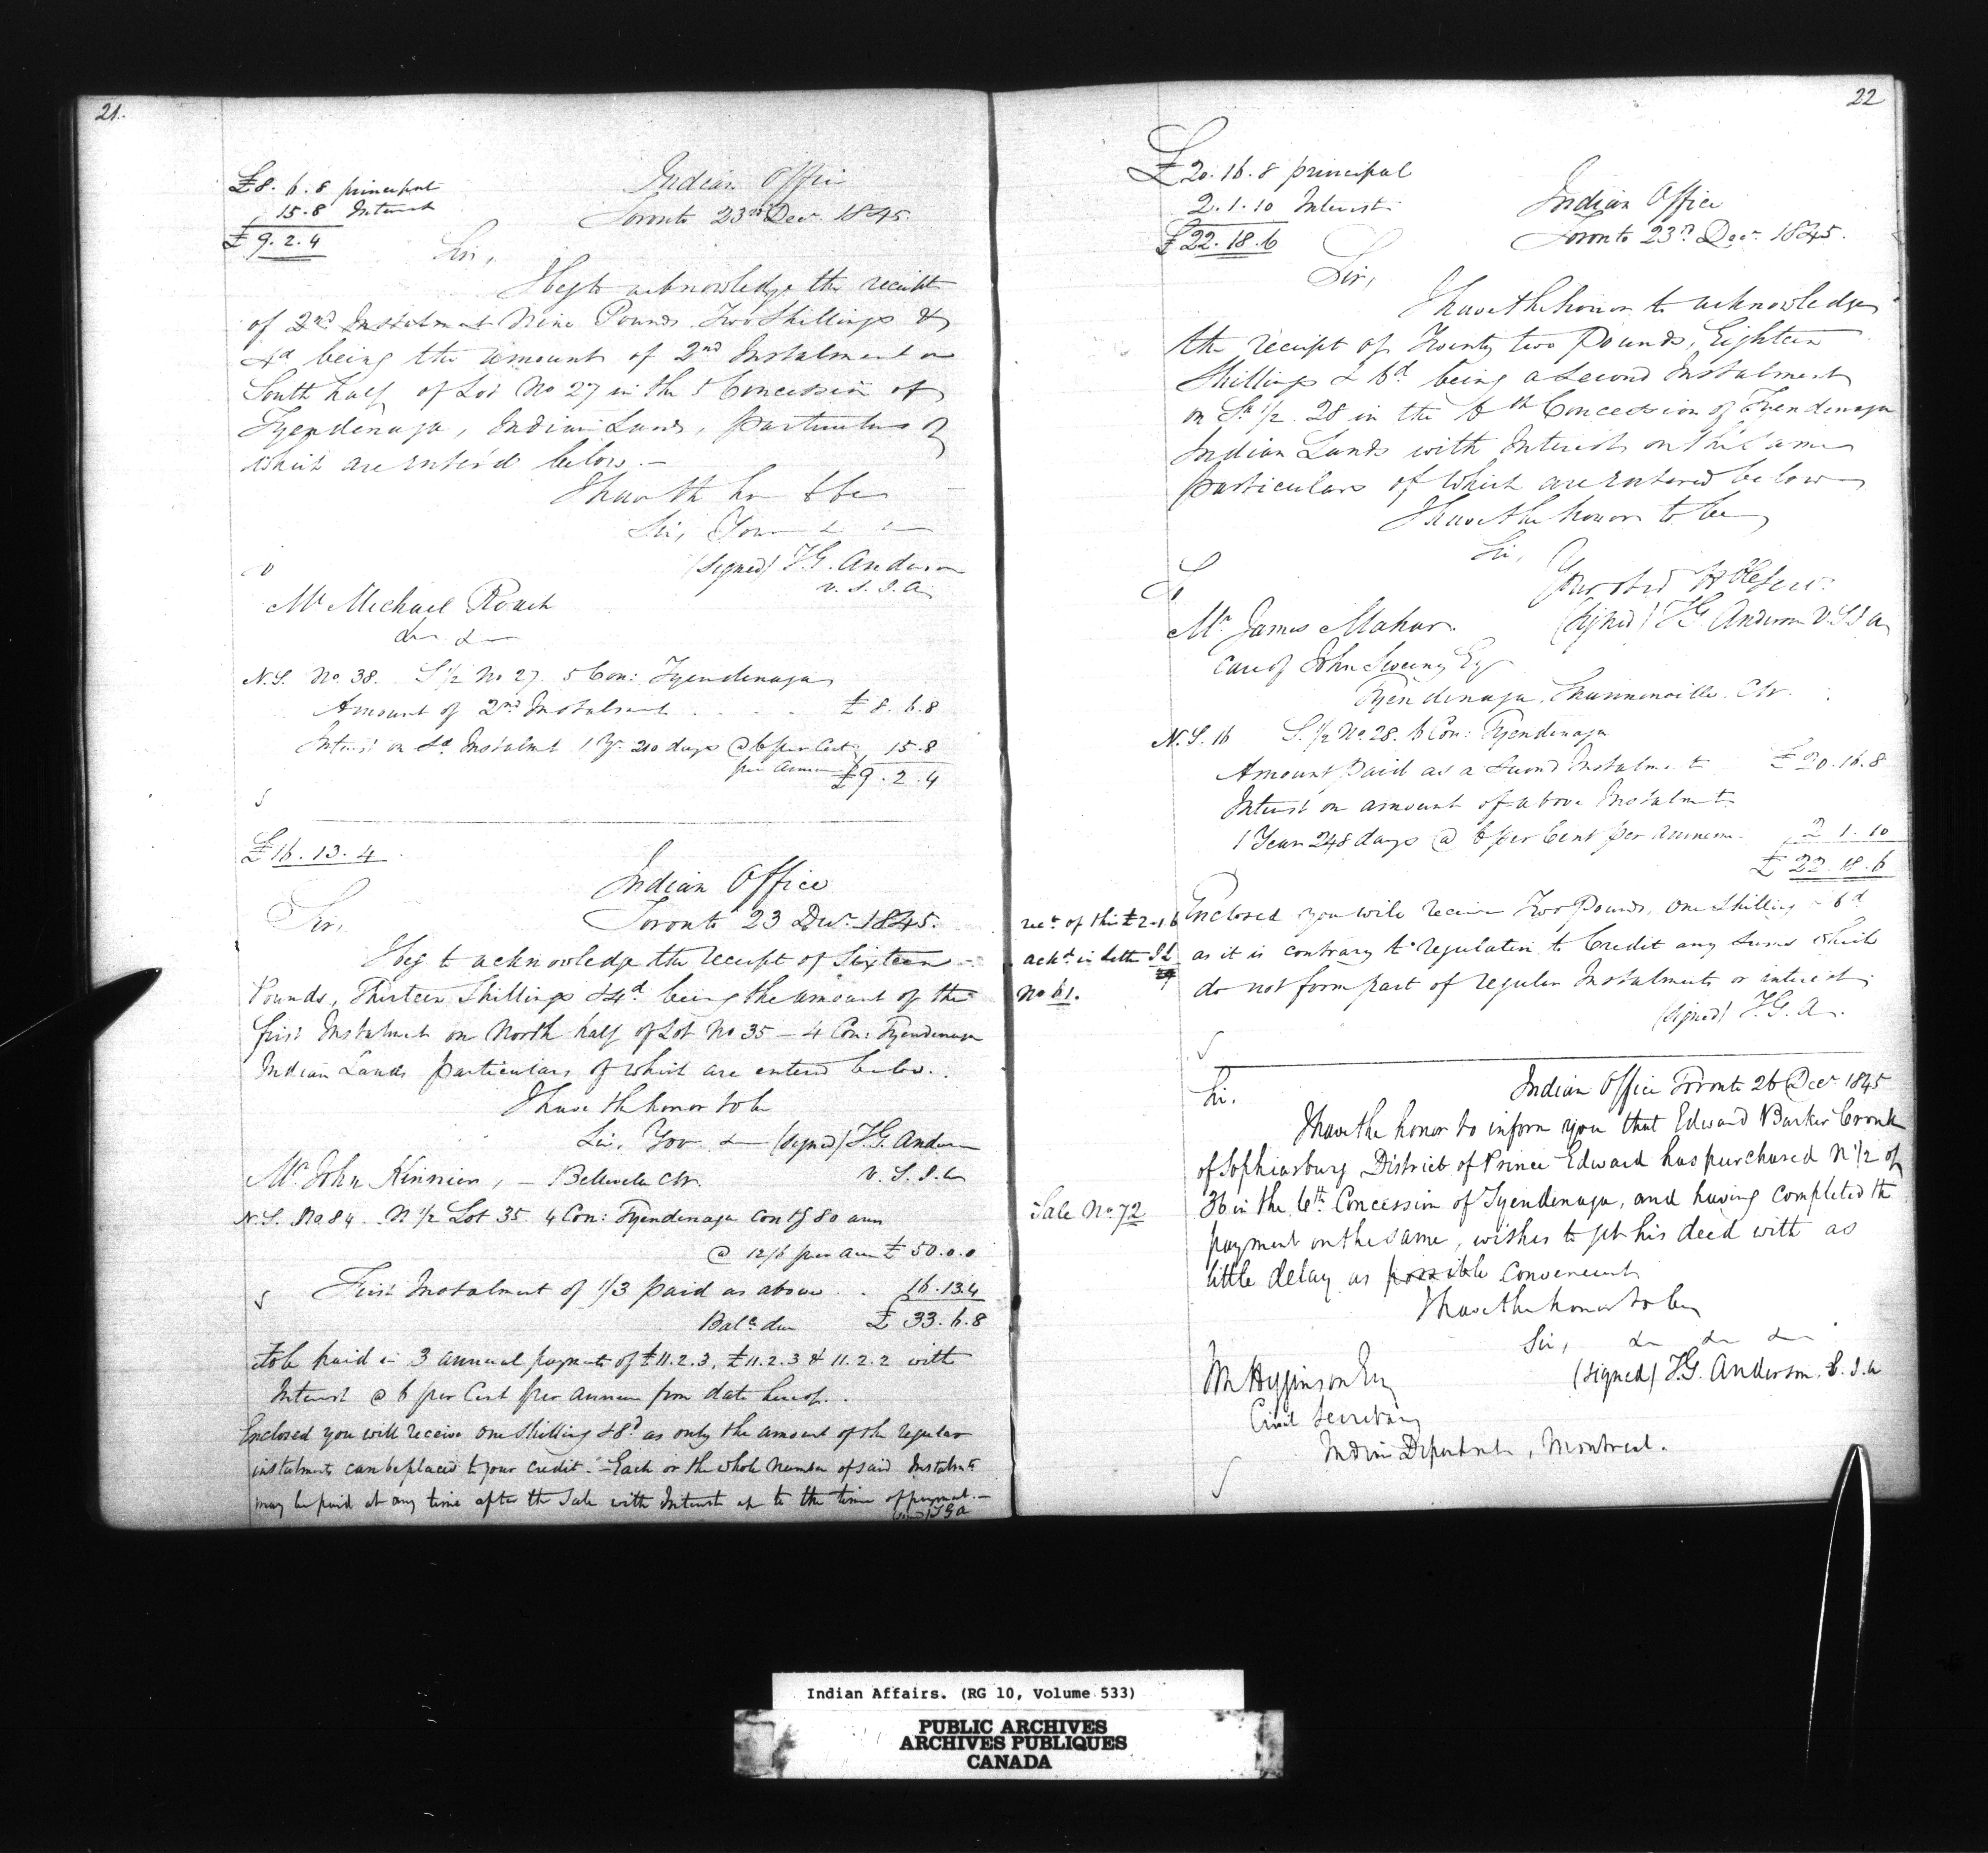 21.
£8. 6. 8 principal
15.8 Interest
£9. 2. 4
Indian Office
Toronto 23rd Decr 1845.
Sir,
I beg to acknowledge the receipt
of 2nd Instalment Nine Pounds Two Shillings &
4d being the amount of 2nd Instalment on
South half of Lot No 27 in the 5 Concession of
Tyendenaga, Indian Lands, particulars of
which are enterd below. -
I have the hr to be
Sir, Your
(Signed) T.G. Anderson
V. S. I. A
Mr Michael Roach
&c &c
N.S. No. 38. S 1/2 No 27. 5 Con: Tyendenaga
Amount of 2nd Instalment . . . . £ 8. 6. 8
Interest on Sd Instalmt 1 Yr. 210 days @ 6 per Cent 15. 8
per annum £9. 2. 4
£16. 13. 4
Indian Office
Toronto 23 Decr 1845.
Sir,
I beg to acknowledge the receipt of Sixteen
Pounds, Thirteen Shillings & 4d being the amount of the
first Instalment on North half of Lot No 35 - 4 Con: Tyendenaga
Indian Lands particulars of which are entered below.
I have the honor to be
Sir, Your &c (signed) T.G. Anderson
Mr John Kinnien, - Belleville CW. V. S. I. A
N.S. No 84. N 1/2 Lot 35. 4 Con: Tyendenaga contg 80 acres
@ 12/6 per acre £ 50. 0. 0
First Instalment of 1/3 paid as above . . 16. 13. 4
Balce due £ 33. 6. 8
to be paid in 3 annual payments of £11. 2. 3, £11. 2. 3 & 11. 2. 2 with
Interest @ 6 per Cent per annum from date hereof.
Enclosed you will receive one Shilling & 8d as only the amount of the regular
instalments can be placed to your credit. - Each or the whole number of said Instalmts
may be paid at any time after the Sale with Interest up to the time of payment. -
(signed) TGA
22
£20. 16. 8 principal
2. 1. 10 Interest
£22. 18. 6
Indian Office
Toronto 23rd Decr 1845.
Sir,
I have the honor to acknowledge
the receipt of Twenty two Pounds, Eighteen
Shillings & 6d being a Second Instalment
on Sh 1/2 28 in the 6th Concession of Tyendenaga
Indian Lands with Interest on the same
particulars of which are entered below
I have the honor to be
Sir,
Your obed Hble Serv.
To
Mr James Mahar. (signed) T.G. Anderson V S I A
care of John Sweeny Esq
Tyendenaga, Shannonville. CW.
N. S. 16 S. 1/2 No. 28. 6 Con: Tyendenaga
Amount paid as a Second Instalment £ 20. 16. 8
Interest on amount of above Instalmt
1 Year 248 days @ 6 per Cent per annum. 2. 1. 10
£ 22. 18. 6
rect of this £2-1. 6
ackd in letter
No 61.
Enclosed you will receive Two Pounds, One Shilling & 6d
as it is contrary to regulation to Credit any sums which
do not form part of regular Instalments or interest.
(signed) T. G. A.
Indian Office Toronto 26 Decr 1845
Sir.
I have the honor to inform you that Edward Barker Cronk
of Sophiasburg District of Prince Edward has purchased N 1/2 of
Sale No. 72
36 in the 6th Concession of Tyendenaga, and having completed the
payment on the same, wishes to get his deed with as
little delay as possible convenient
I have the honor to be
Sir, &c &c &c
(signed) T.G. Anderson. S. I. A
Higginson Esq
Civil Secretary
Indian Department, Montreal.
Indian Affairs. (RG 10, Volume 533)
PUBLIC ARCHIVES
ARCHIVES PUBLIQUES
CANADA